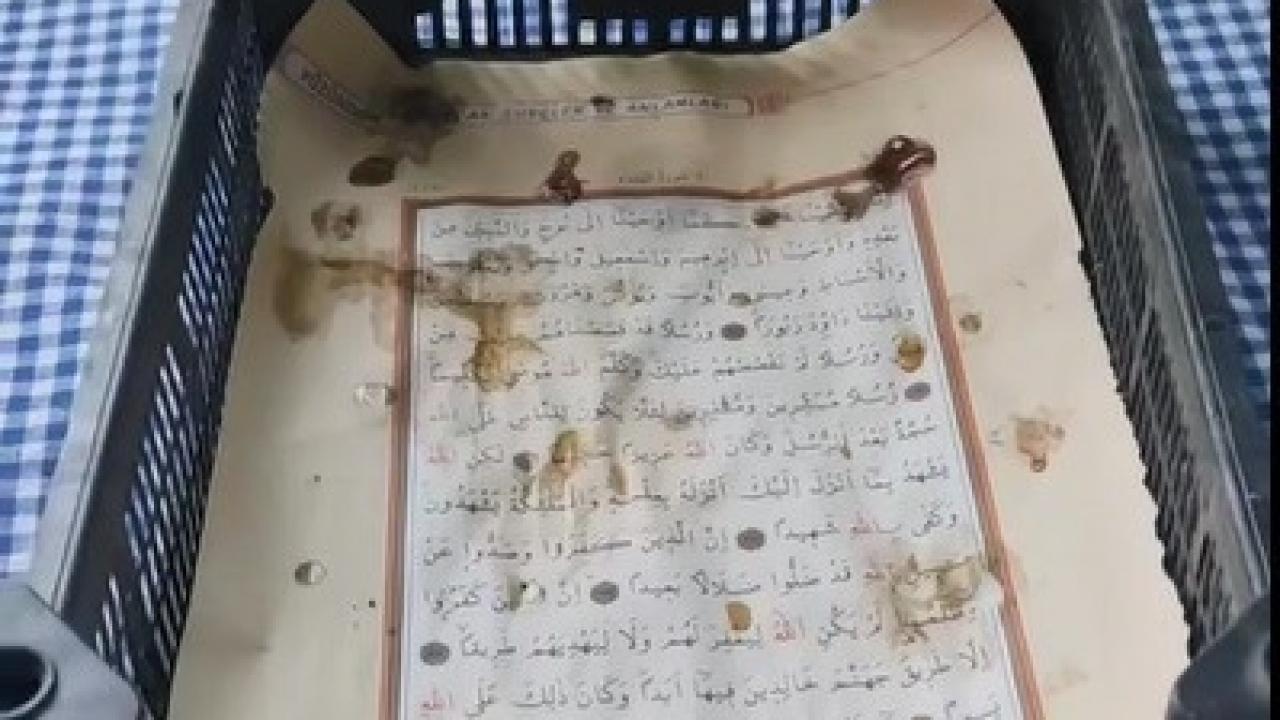 ANLAMLARI
كَمَٓا اَوْحَيْنَٓا اِلٰى نُوحٍ وَالنَّبِيّٖنَ مِنْ
بَعْدِهٖ وَاَوْحَيْنَٓا اِلٰٓى اِبْرٰهٖيمَ وَاِسْمٰعٖيلَ
وَالْاَسْبَاطِ وَعٖيسٰى وَاَيُّوبَ وَيُونُسَ وَهٰرُونَ
وَاٰتَيْنَا دَاوُ۫دَ زَبُورًا وَرُسُلًا قَدْ قَصَصْنَاهُمْ مِنْ
وَرُسُلًا لَمْ نَقْصُصْهُمْ عَلَيْكَ وَكَلَّمَ اللّٰهُ مُوسٰى تَكْلٖيمًا
رُسُلًا مُبَشِّرٖينَ وَمُنْذِرٖينَ لِئَلَّا يَكُونَ لِلنَّاسِ عَلَى اللّٰهِ
حُجَّةٌ بَعْدَ الرُّسُلِ وَكَانَ اللّٰهُ عَزٖيزًا لٰكِنِ اللّٰهُ
يَشْهَدُ بِمَٓا اَنْزَلَ اِلَيْكَ اَنْزَلَهُ بِعِلْمِهٖ وَالْمَلٰٓئِكَةُ يَشْهَدُونَ
وَكَفٰى بِاللّٰهِ شَهٖيدًا اِنَّ الَّذٖينَ كَفَرُوا وَصَدُّوا عَنْ
اللّٰهِ قَدْ ضَلُّوا ضَلَالًا بَعٖيدًا اِنَّ كَفَرُوا
وَظَلَمُوا لَمْ يَكُنِ اللّٰهُ لِيَغْفِرَ لَهُمْ وَلَا لِيَهْدِيَهُمْ طَرٖيقًا
اِلَّا طَرٖيقَ جَهَنَّمَ خَالِدٖينَ فٖيهَٓا اَبَدًا وَكَانَ ذٰلِكَ عَلَى اللّٰهِ